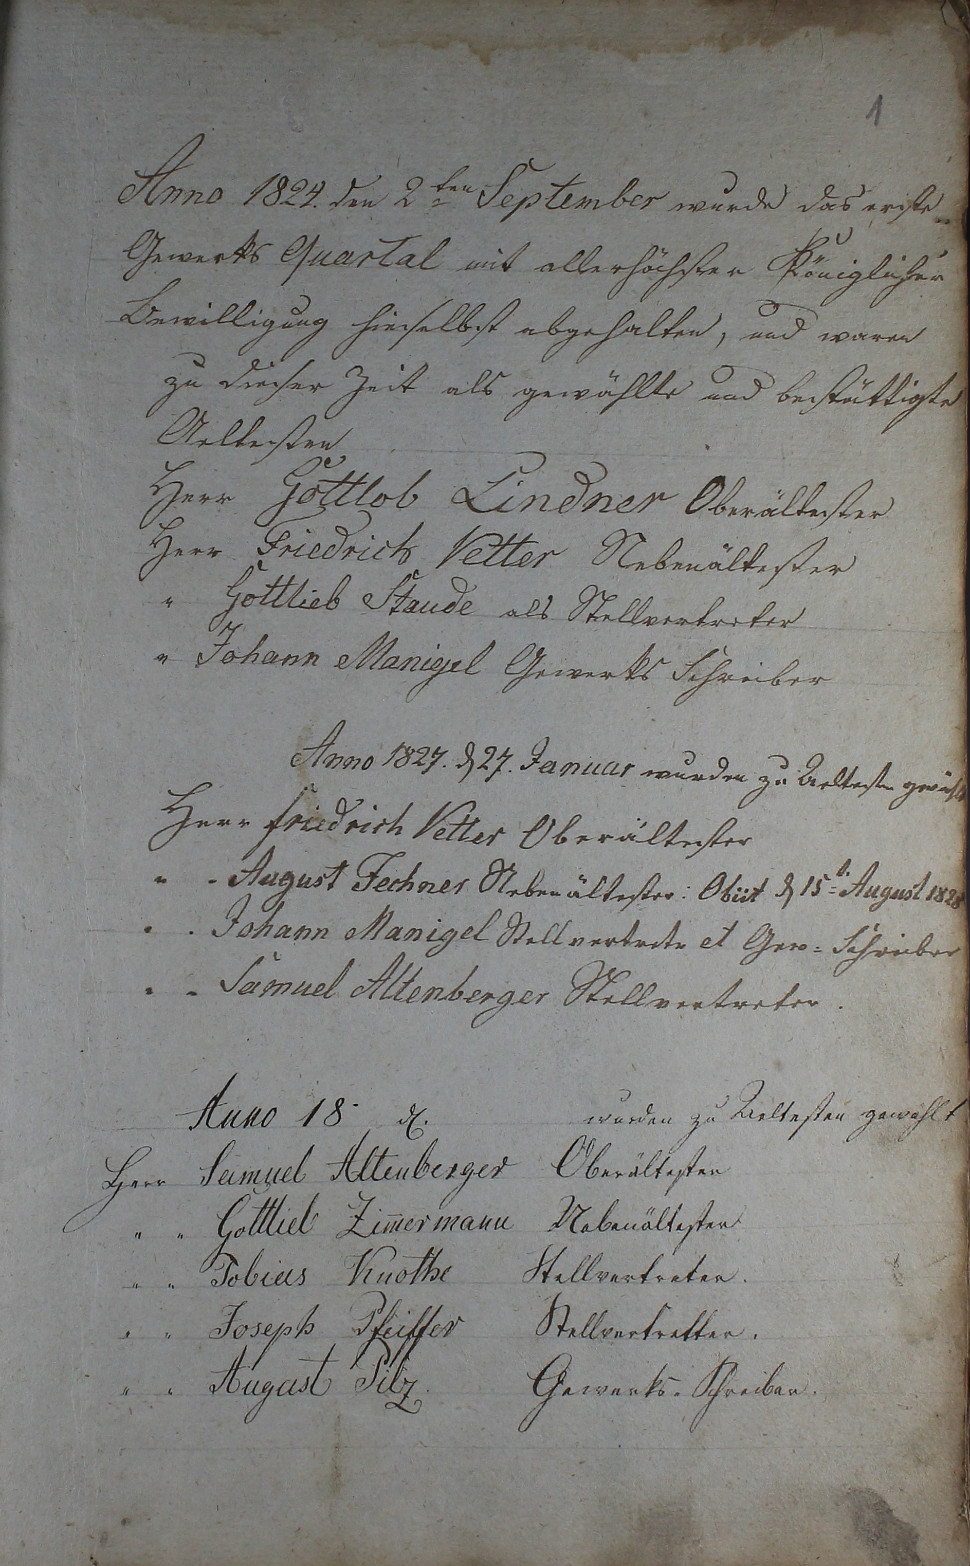 1
Anno 1824. den 2ten September wurde das erste
Gewerks Quartal mit allerhöchster Königlicher
Bewilligung hieselbst abgehalten, und waren
zu dieser Zeit als gewählte und bestättigte
Aeltesten
Herr Gottlob Lindner Oberältester
Herr Friedrich Vetter Nebenältester
" Gottlieb Staude als Stellvertreter
" Johann Manigel Gewerks Schreiber
Anno 1827. d 27. Januar wurden zu Aeltesten gewählt
Herr Friedrich Vetter Oberältester
" - August Fechner Nebenältester: Obiit d 15t August 1828
" - Johann Manigel Stellvertreter et Gew= Schreiber
" - Samuel Altenberger Stellvertreter.
Anno 18- d. wurden zu Aeltesten gewählt
Herr Samuel Altenberger Oberältesten
" " Gottlieb Zim̄ermann Nebenältesten
" " Tobias Knothe Stellvertreter.
" " Joseph Pfeiffer Stellvertretter.
" " August Pilz. Gewerks-Schreiber.